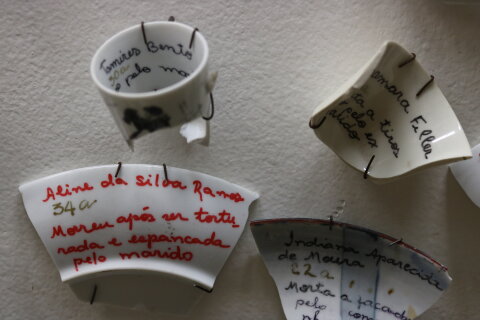 Tamires Bento
30a
pelo ma
amara Feller
a a tiros
pelo ex
rido
Aline da Silva Ramos
34 a
Morreu após ser tortu
rada e espancada
pelo marido
Indiana Aparecida
de Moura
22 a
Morta a facada
pelo com